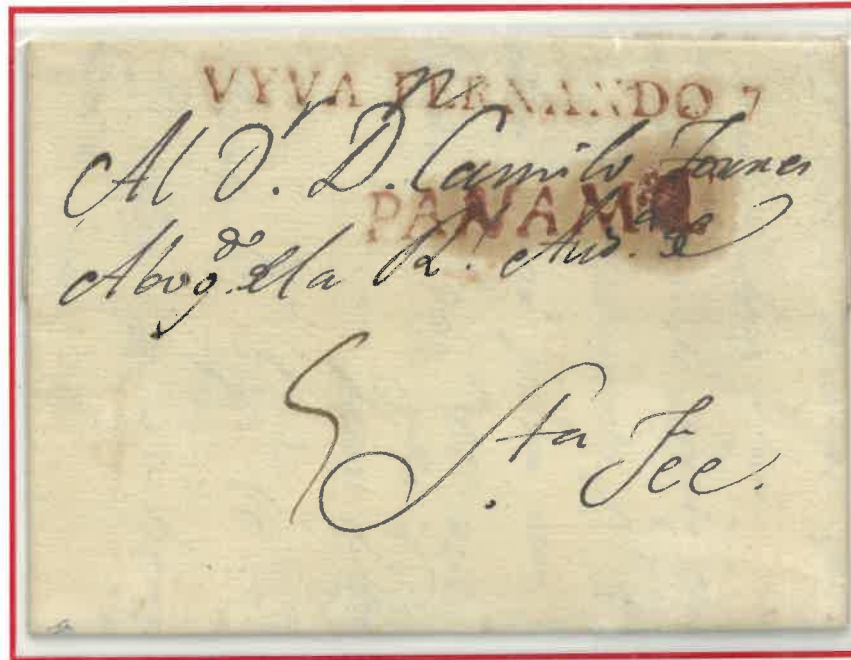 VYVA FERNANDO 7
Al D.r D. Camilo Torres
PANAMA
Abog.do de la R.l Aud.a de
5 S.ta Fee.